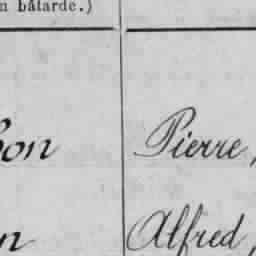 n bâtarde.)
on Pierre,
n Alfred,